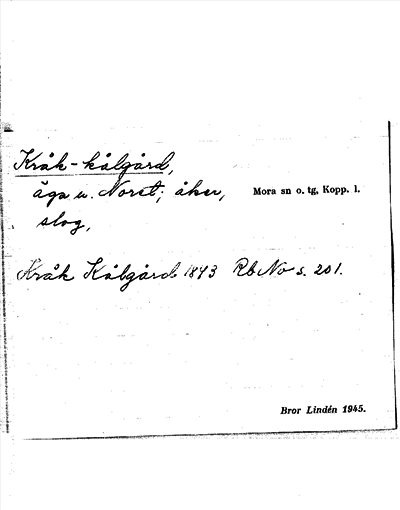 Kråk-kålgård,
äga u. Noret; åker, Mora sn o. tg, Kopp. l.
slog,
Kråk Kålgård 1843 Rb No s. 201.
Bror Lindén 1945.